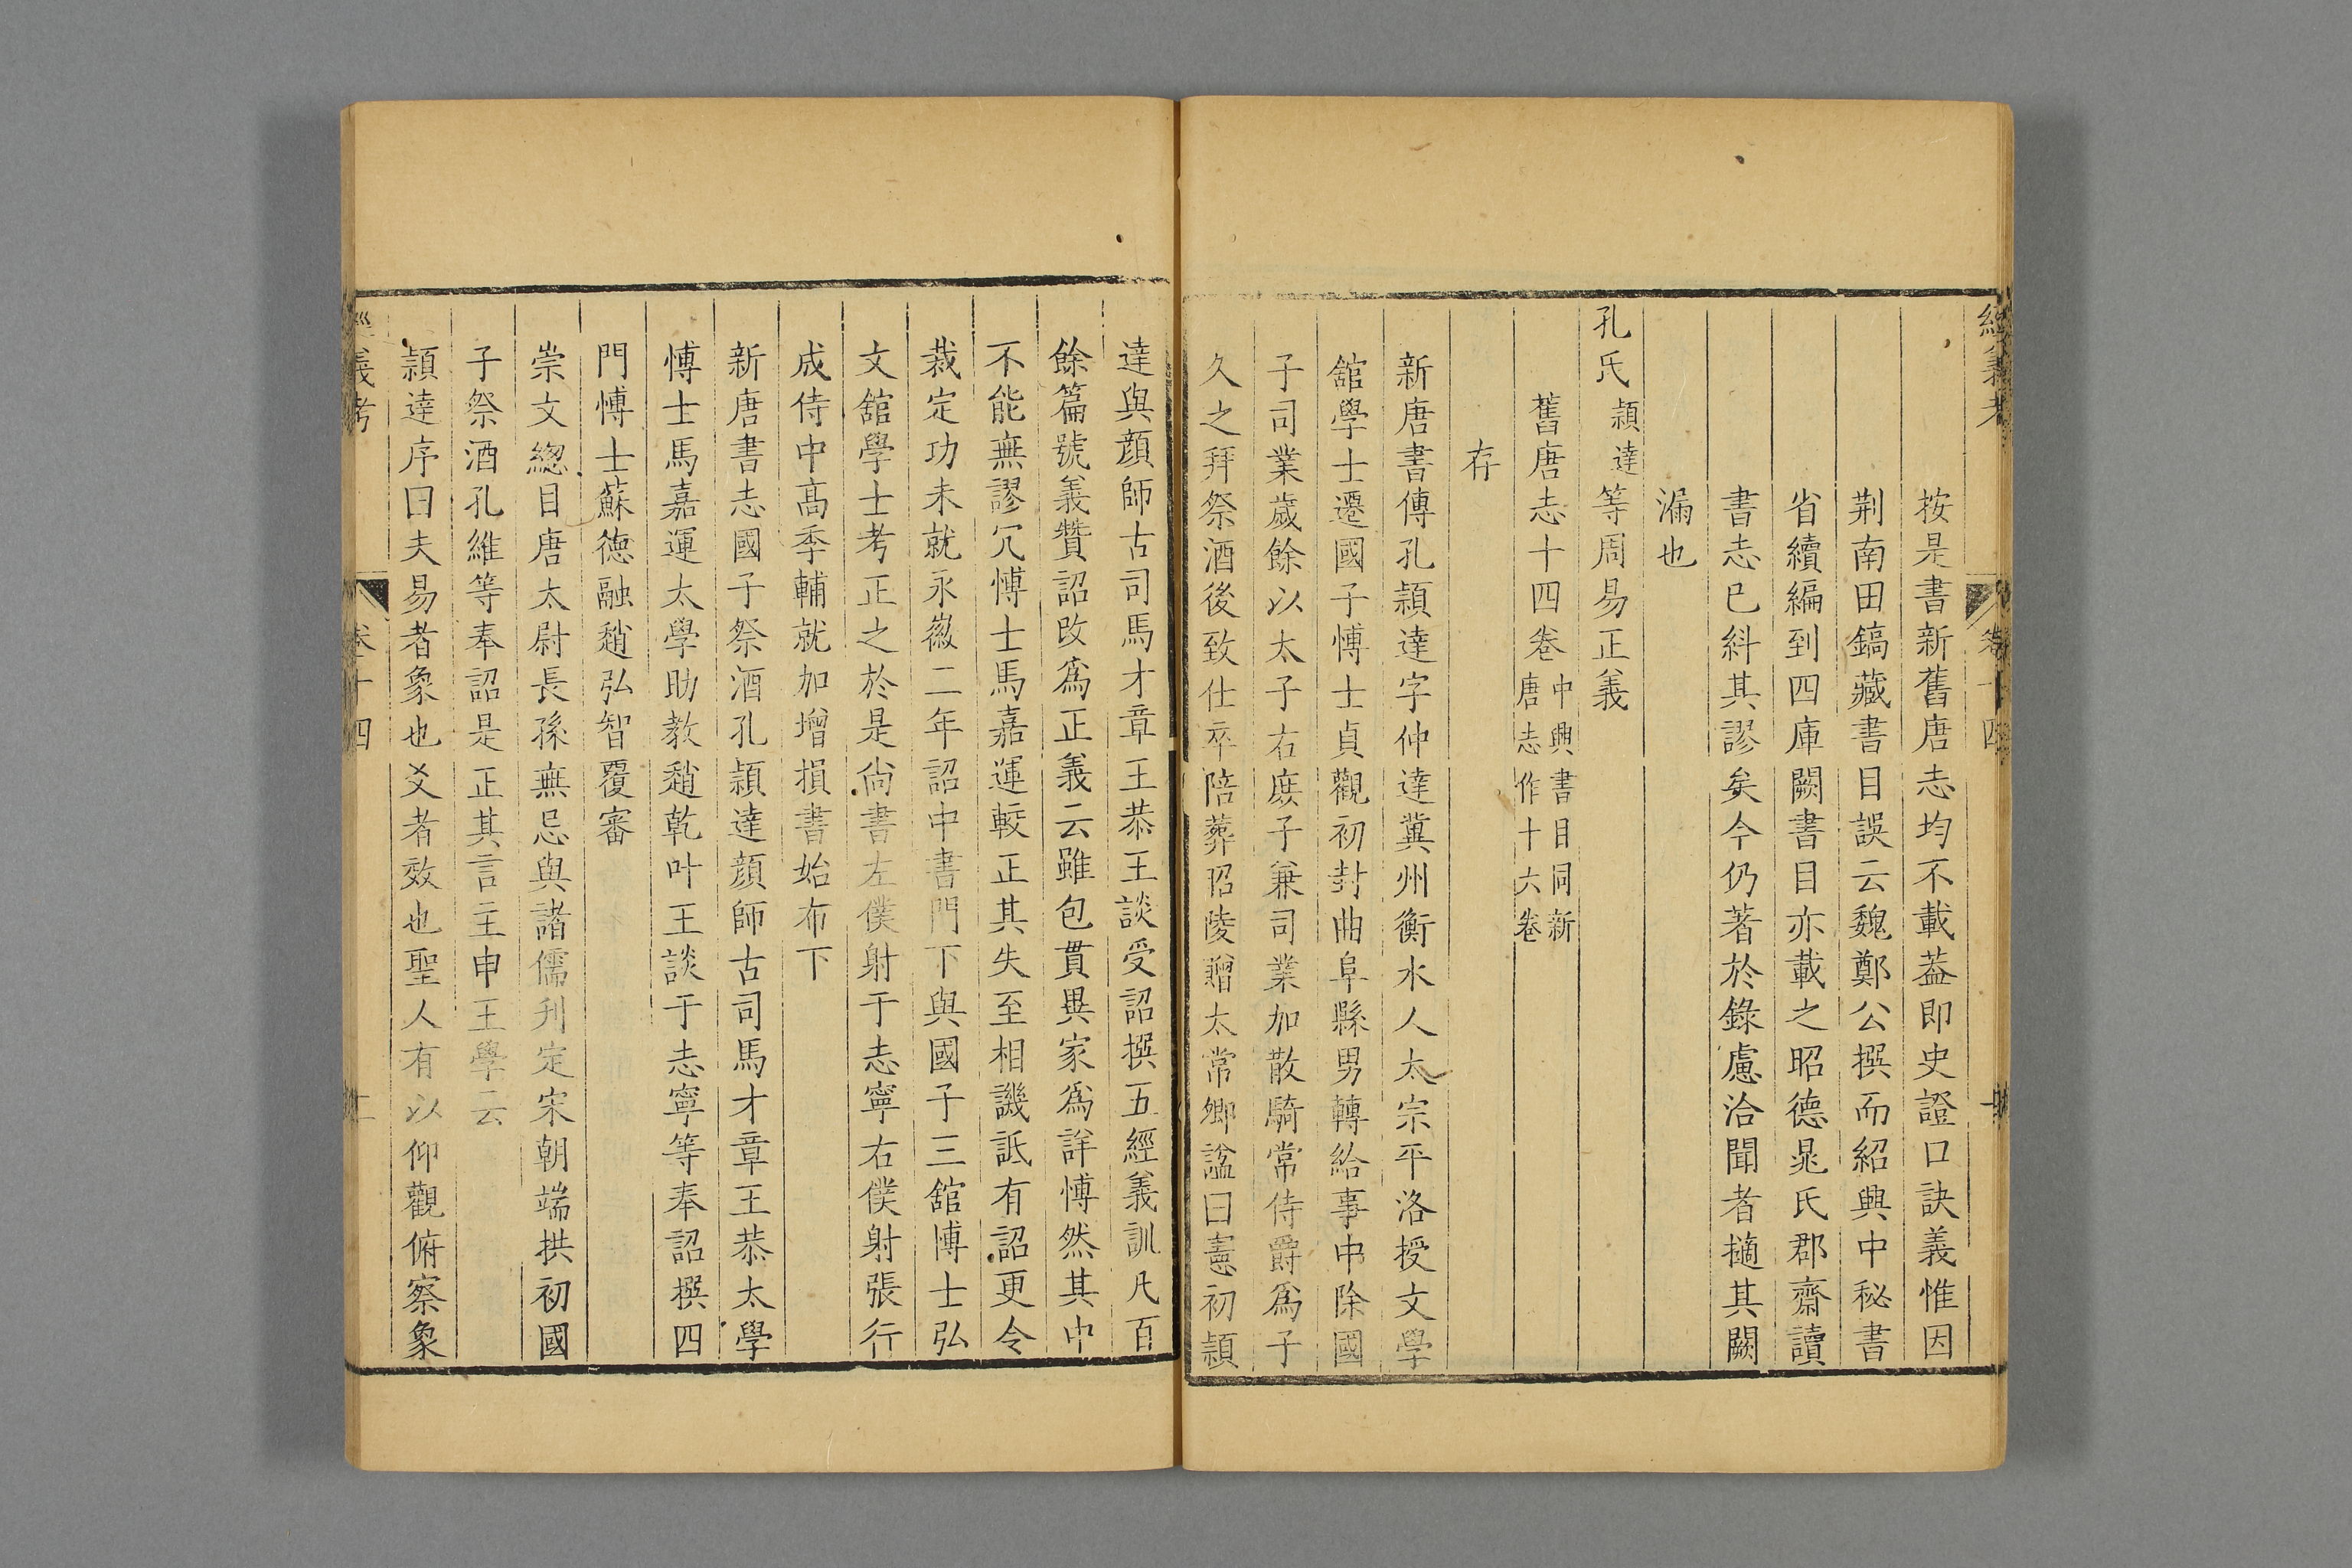 經義考 卷十四
按是書新舊唐志均不載葢即史證口訣義惟因
荆南田鎬藏書目誤云魏鄭公撰而紹興中秘書
省續編到四庫闕書目亦載之昭德晁氏郡齋讀
書志已紏其謬矣今仍著於錄慮洽聞者擿其闕
漏也
孔氏穎達等周易正義
舊唐志十四卷中興書目同新唐志作十六卷
存
新唐書傳孔穎達字仲達冀州衡水人太宗平洛授文學
舘學士遷國子愽士貞觀初封曲阜縣男轉給事中除國
子司業歲餘以太子右庶子兼司業加散騎常侍爵爲子
久之拜祭酒後致仕卒陪葬昭陵贈太常卿諡曰憲初穎
達與顔師古司馬才章王恭王談受詔撰五經義訓凡百
餘篇號義贊詔改爲正義云雖包貫異家爲詳愽然其中
不能無謬冗愽士馬嘉運駮正其失至相譏詆有詔更令
裁定功未就永徽二年詔中書門下與國子三舘愽士弘
文舘學士考正之於是尙書左僕射于志寧右僕射張行
成侍中髙季輔就加增損書始布下
新唐書志國子祭酒孔穎達顔師古司馬才章王恭太學
愽士馬嘉運太學助敎趙乾叶王談于志寧等奉詔撰四
門愽士蘇德融趙弘智覆審
崇文緫目唐太尉長孫無忌與諸儒刋定宋朝端拱初國
子祭酒孔維等奉詔是正其言主申王學云
穎達序曰夫易者象也爻者效也聖人有以仰觀俯察象
經義考 卷十四 二